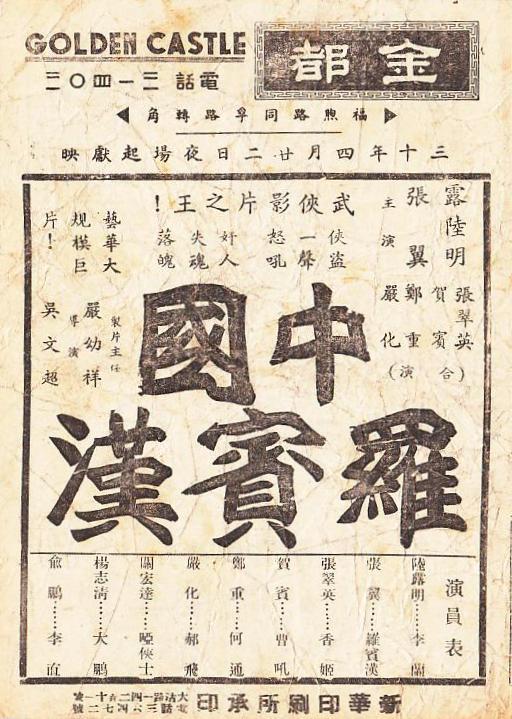 GOLDEN CASTLE
金都
電話三一四〇二
福煦路同孚路轉角
三十年四月廿二日夜場起獻映
武俠影片之王！
俠盜一聲怒吼
奸人失魂落魄
主演
露陸明
張翼
張翠英
賀賓
鄭重
嚴化
(合演)
藝華大規模巨片！
製片主任
嚴幼祥
導演
吳文超
中國
羅賓漢
演員表
陸露明……李蘭
張翼……羅賓漢
張翠英……香姬
賀賓……曹吼
鄭重……何通
嚴化……郝飛
關宏達……啞俠士
楊志清……大鵬
俞鵬……李直
新華印刷所承印